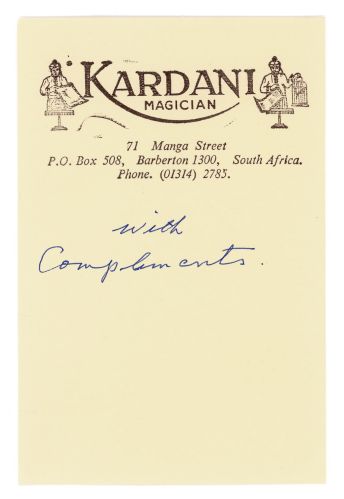 KARDANI
MAGICIAN
71 Manga Street
P.O. Box 508, Barberton 1300, South Africa.
Phone. (01314) 2785.
with
Compliments.